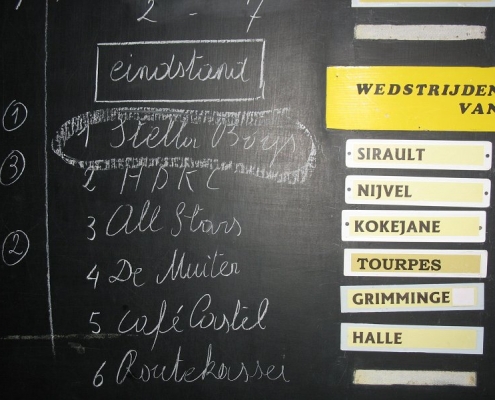 2 - 7
eindstand
1
1 Stella Boys
3
2 HBKC
3 All Stars
2
4 De Muiter
5 Café Castel
6 Routekassei
WEDSTRIJDEN
VAN
SIRAULT
NIJVEL
KOKEJANE
TOURPES
GRIMMINGE
HALLE